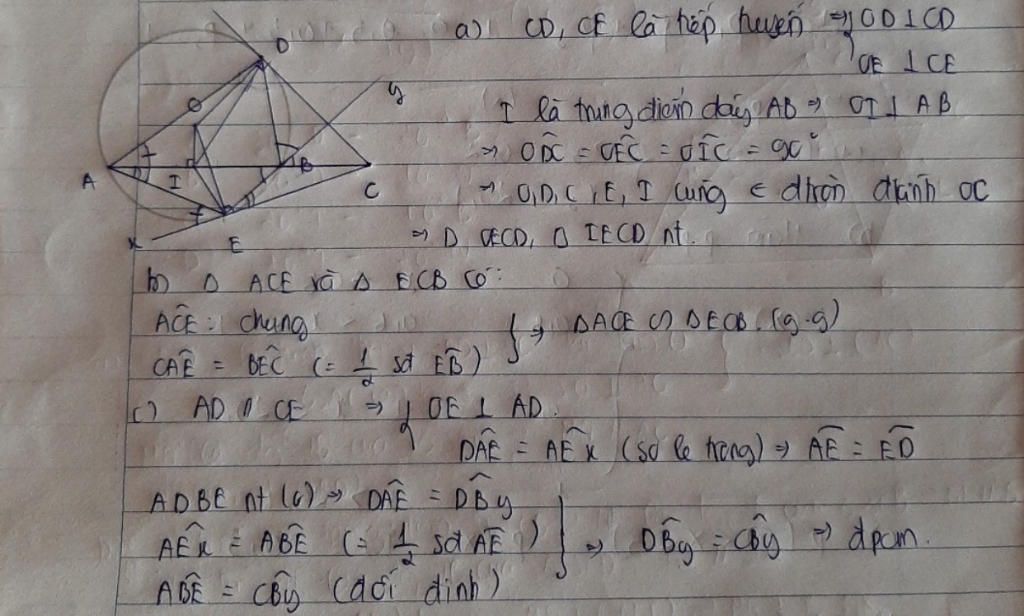 a) CD, CE là tiếp tuyến ⇒ { OD ⊥ CD
OE ⊥ CE
I là trung điểm dây AB ⇒ OI ⊥ AB
⇒ ODC = OEC = OIC = 90°
⇒ O, D, C, E, I cùng ∈ đtròn đkính OC
⇒ □ OECD, □ IECD nt.
b) Δ ACE và Δ ECB có:
ACE : chung
CAE = BEC (= 1/2 sđ EB) } ⇒ ΔACE ∽ ΔECB. (g.g)
c) AD // CE ⇒ { OE ⊥ AD.
DAE = AEx (so le trong) ⇒ AE = ED
ADBE nt (O) ⇒ DAE = DBy
AEx = ABE (= 1/2 sđ AE) } ⇒ DBy = CBy ⇒ đpcm.
ABE = CBy (đối đỉnh)
D
O
y
A
I
B
C
x
E